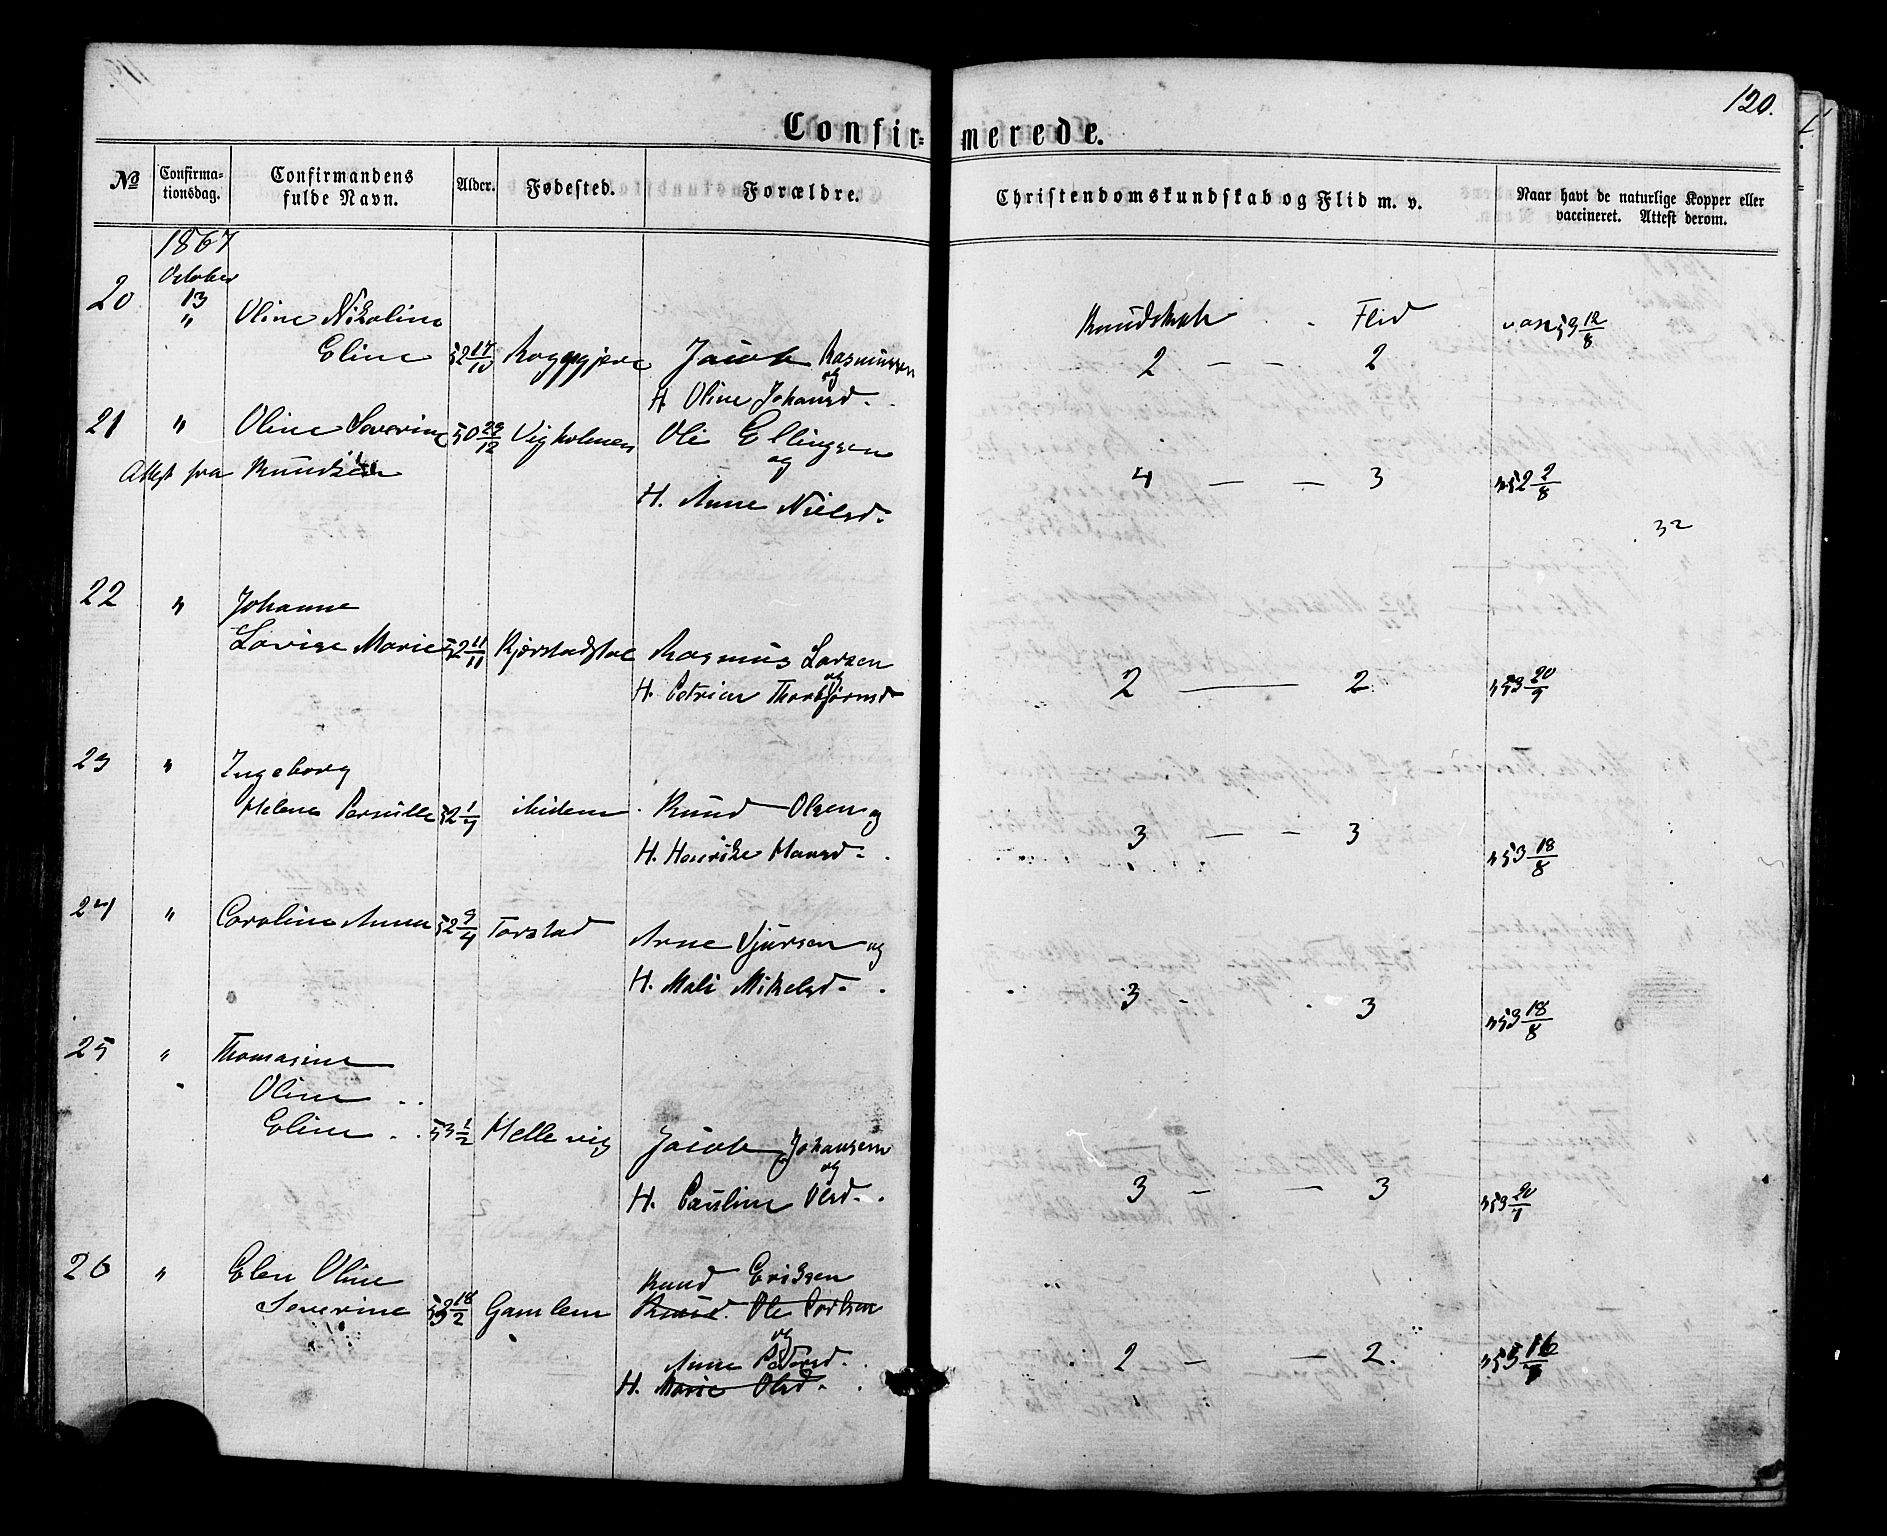 120.
Confir- merede.
No Confirma-tionsdag. Confirmandens fulde Navn. Alder. Fødested. Forældre. Christendomskundskab og Flid m. v. Naar havt de naturlige Kopper eller vaccineret. Attest derom.
1867
October
20 13 Oline Nikoline Kundskab Flid vac 53 12/8
" Eline 52 17/10 Jacob Rasmussen 2 — — 2
og
H. Oline Johansd.
21 " Oline Severine 50 29/12 Vigholmen Ole Ellingsen
Attest fra Knudsen og 4 — — 3 " 52 2/8
H. Anne Nielsd.
32
22 " Johanne
Lovise Marie 52 11/11 Kjerstadstøe Rasmus Larsen
og
H. Petrine Thorbjørnsd 2 — 2 " 53 20/9
23 " Ingeborg
Helene Pernille 52 1/7 ibidem Knud Olsen og 3 — — 3
H. Henrike Hansd. " 53 18/8
24 " Caroline Anna 52 9/4 Tarstad Arne Sjursen og
H. Mali Mikelsd. 3 - 3 " 53 18/8
25 " Thomasine
Oline
Eline 53 1/2 Hellevig Jacob Johansen
og
H. Pauline Olsd. 3 — — 3 " 53 20/7
26 " Elen Oline Knud Eriksen
Severine 18/2 Gamlem Knud Ole
og
Anne Pedersd. 2 — — 2. " 55 16
H. Marie Olsd.